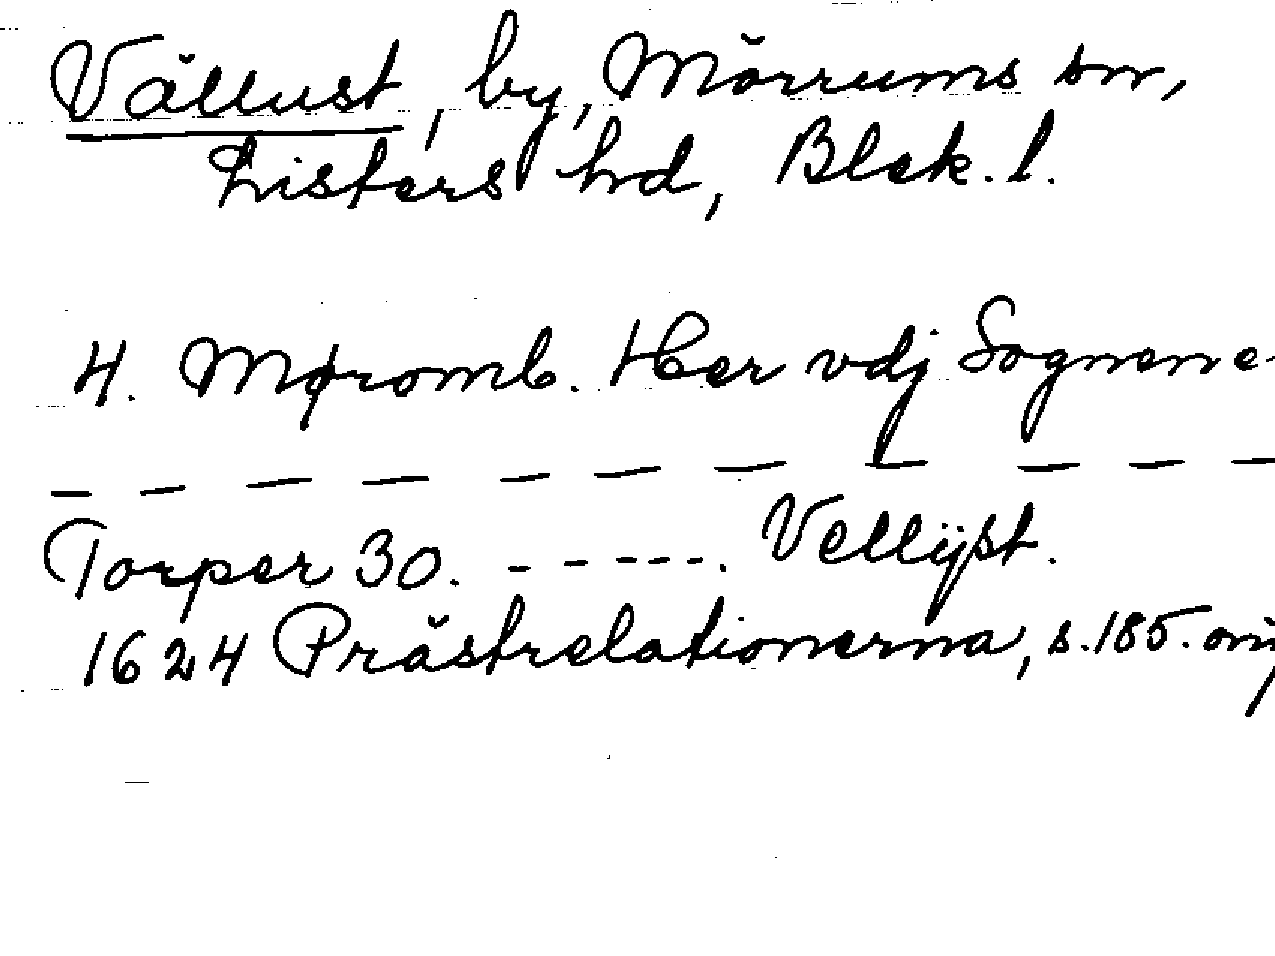 Vällust, by, Mörrums sn,
Listers hd, Blek. l.
4. Møromb. Her vdj Sognene
— — — — — — — — — —
Torper 30. - - - - - . Vellÿst.
1624 Prästrelationerna, s. 185.